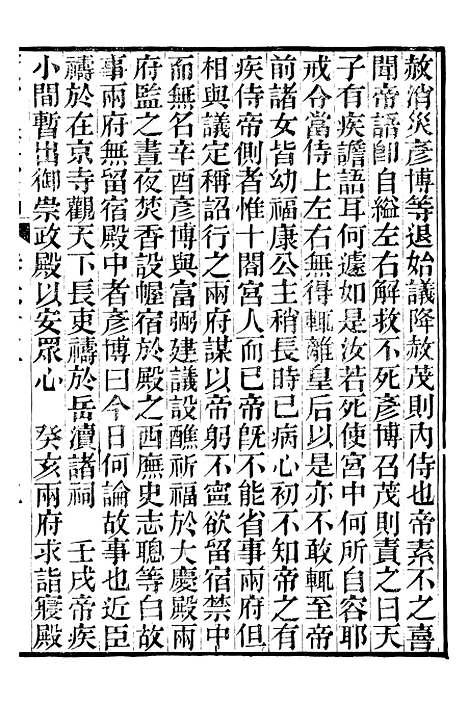 赦消災彥博等退始議降赦茂則內侍也帝素不之喜
聞帝語卽自縊左右解救不死彥博召茂則責之曰天
子有疾譫語耳何遽如是汝若死使宮中何所自容耶
戒令當侍上左右無得輒離皇后以是亦不敢輒至帝
前諸女皆幼福康公主稍長時已病心初不知帝之有
疾侍帝側者惟十閤宮人而已帝旣不能省事兩府但
相與議定稱詔行之兩府謀以帝躬不寧欲留宿禁中
而無名辛酉彥博與富弼建議設醮祈福於大慶殿兩
府監之晝夜焚香設幄宿於殿之西廡史志聰等白故
事兩府無留宿殿中者彥博曰今日何論故事也近臣
禱於在京寺觀天下長吏禱於岳瀆諸祠　壬戌帝疾
小間暫出御崇政殿以安眾心　癸亥兩府求詣寢殿